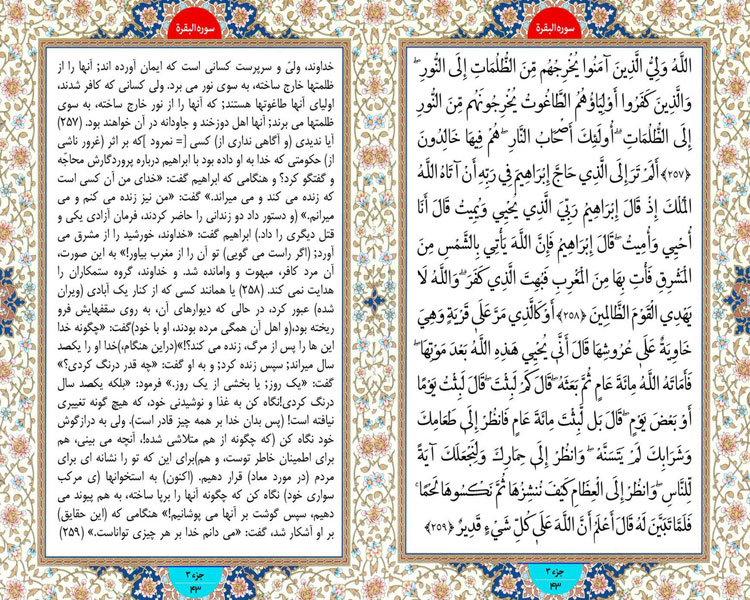 سوره البقرة
اللَّهُ وَلِيُّ الَّذِينَ آمَنُوا يُخْرِجُهُم مِّنَ الظُّلُمَاتِ إِلَى النُّورِ ۖ
وَالَّذِينَ كَفَرُوا أَوْلِيَاؤُهُمُ الطَّاغُوتُ يُخْرِجُونَهُم مِّنَ النُّورِ
إِلَى الظُّلُمَاتِ ۗ أُولَٰئِكَ أَصْحَابُ النَّارِ ۖ هُمْ فِيهَا خَالِدُونَ
﴿٢٥٧﴾ أَلَمْ تَرَ إِلَى الَّذِي حَاجَّ إِبْرَاهِيمَ فِي رَبِّهِ أَنْ آتَاهُ اللَّهُ
الْمُلْكَ إِذْ قَالَ إِبْرَاهِيمُ رَبِّيَ الَّذِي يُحْيِي وَيُمِيتُ قَالَ أَنَا
أُحْيِي وَأُمِيتُ ۖ قَالَ إِبْرَاهِيمُ فَإِنَّ اللَّهَ يَأْتِي بِالشَّمْسِ مِنَ
الْمَشْرِقِ فَأْتِ بِهَا مِنَ الْمَغْرِبِ فَبُهِتَ الَّذِي كَفَرَ ۗ وَاللَّهُ لَا
يَهْدِي الْقَوْمَ الظَّالِمِينَ ﴿٢٥٨﴾ أَوْ كَالَّذِي مَرَّ عَلَىٰ قَرْيَةٍ وَهِيَ
خَاوِيَةٌ عَلَىٰ عُرُوشِهَا قَالَ أَنَّىٰ يُحْيِي هَٰذِهِ اللَّهُ بَعْدَ مَوْتِهَا ۖ
فَأَمَاتَهُ اللَّهُ مِائَةَ عَامٍ ثُمَّ بَعَثَهُ ۖ قَالَ كَمْ لَبِثْتَ ۖ قَالَ لَبِثْتُ يَوْمًا
أَوْ بَعْضَ يَوْمٍ ۖ قَالَ بَل لَّبِثْتَ مِائَةَ عَامٍ فَانظُرْ إِلَىٰ طَعَامِكَ
وَشَرَابِكَ لَمْ يَتَسَنَّهْ ۖ وَانظُرْ إِلَىٰ حِمَارِكَ وَلِنَجْعَلَكَ آيَةً
لِّلنَّاسِ ۖ وَانظُرْ إِلَى الْعِظَامِ كَيْفَ نُنشِزُهَا ثُمَّ نَكْسُوهَا لَحْمًا ۚ
فَلَمَّا تَبَيَّنَ لَهُ قَالَ أَعْلَمُ أَنَّ اللَّهَ عَلَىٰ كُلِّ شَيْءٍ قَدِيرٌ ﴿٢٥٩﴾
جزء ۳
۴۳
سوره البقرة
خداوند، ولیّ و سرپرست کسانی است که ایمان آورده اند; آنها را از
ظلمتها خارج ساخته، به سوی نور می برد. ولی کسانی که کافر شدند،
اولیای آنها طاغوتها هستند; که آنها را از نور خارج ساخته، به سوی
ظلمتها می برند; آنها اهل دوزخند و جاودانه در آن خواهند بود. (۲۵۷)
آیا ندیدی (و آگاهی نداری از) کسی [= نمرود ]که بر اثر (غرور ناشی
از) حکومتی که خدا به او داده بود با ابراهیم درباره پروردگارش محاجّه
و گفتگو کرد؟ و هنگامی که ابراهیم گفت: «خدای من آن کسی است
که زنده می کند و می میراند.» گفت: «من نیز زنده می کنم و می
میرانم.» (و دستور داد دو زندانی را حاضر کردند، فرمان آزادی یکی و
قتل دیگری را داد.) ابراهیم گفت: «خداوند، خورشید را از مشرق می
آورد; (اگر راست می گویی) تو آن را از مغرب بیاور!» به این صورت،
آن مرد کافر، مبهوت و وامانده شد. و خداوند، گروه ستمکاران را
هدایت نمی کند. (۲۵۸) یا همانند کسی که از کنار یک آبادی (ویران
شده) عبور کرد، در حالی که دیوارهای آن، به روی سقفهایش فرو
ریخته بود،(و اهل آن همگی مرده بودند، او با خود)گفت: «چگونه خدا
این ها را پس از مرگ، زنده می کند؟!»(دراین هنگام،)خدا او را یکصد
سال میراند; سپس زنده کرد; و به او گفت: «چه قدر درنگ کردی؟»
گفت: «یک روز; یا بخشی از یک روز.» فرمود: «بلکه یکصد سال
درنگ کردی!نگاه کن به غذا و نوشیدنی خود، که هیچ گونه تغییری
نیافته است! (پس بدان خدا بر همه چیز قادر است). ولی به درازگوش
خود نگاه کن (که چگونه از هم متلاشی شده!، آنچه می بینی، هم
برای اطمینان خاطر توست، و هم)برای این که تو را نشانه ای برای
مردم (در مورد معاد) قرار دهیم. (اکنون) به استخوانها (ی مرکب
سواری خود) نگاه کن که چگونه آنها را برپا ساخته، به هم پیوند می
دهیم، سپس گوشت بر آنها می پوشانیم!» هنگامی که (این حقایق)
بر او آشکار شد، گفت: «می دانم خدا بر هر چیزی تواناست.» (۲۵۹)
جزء ۳
۴۳